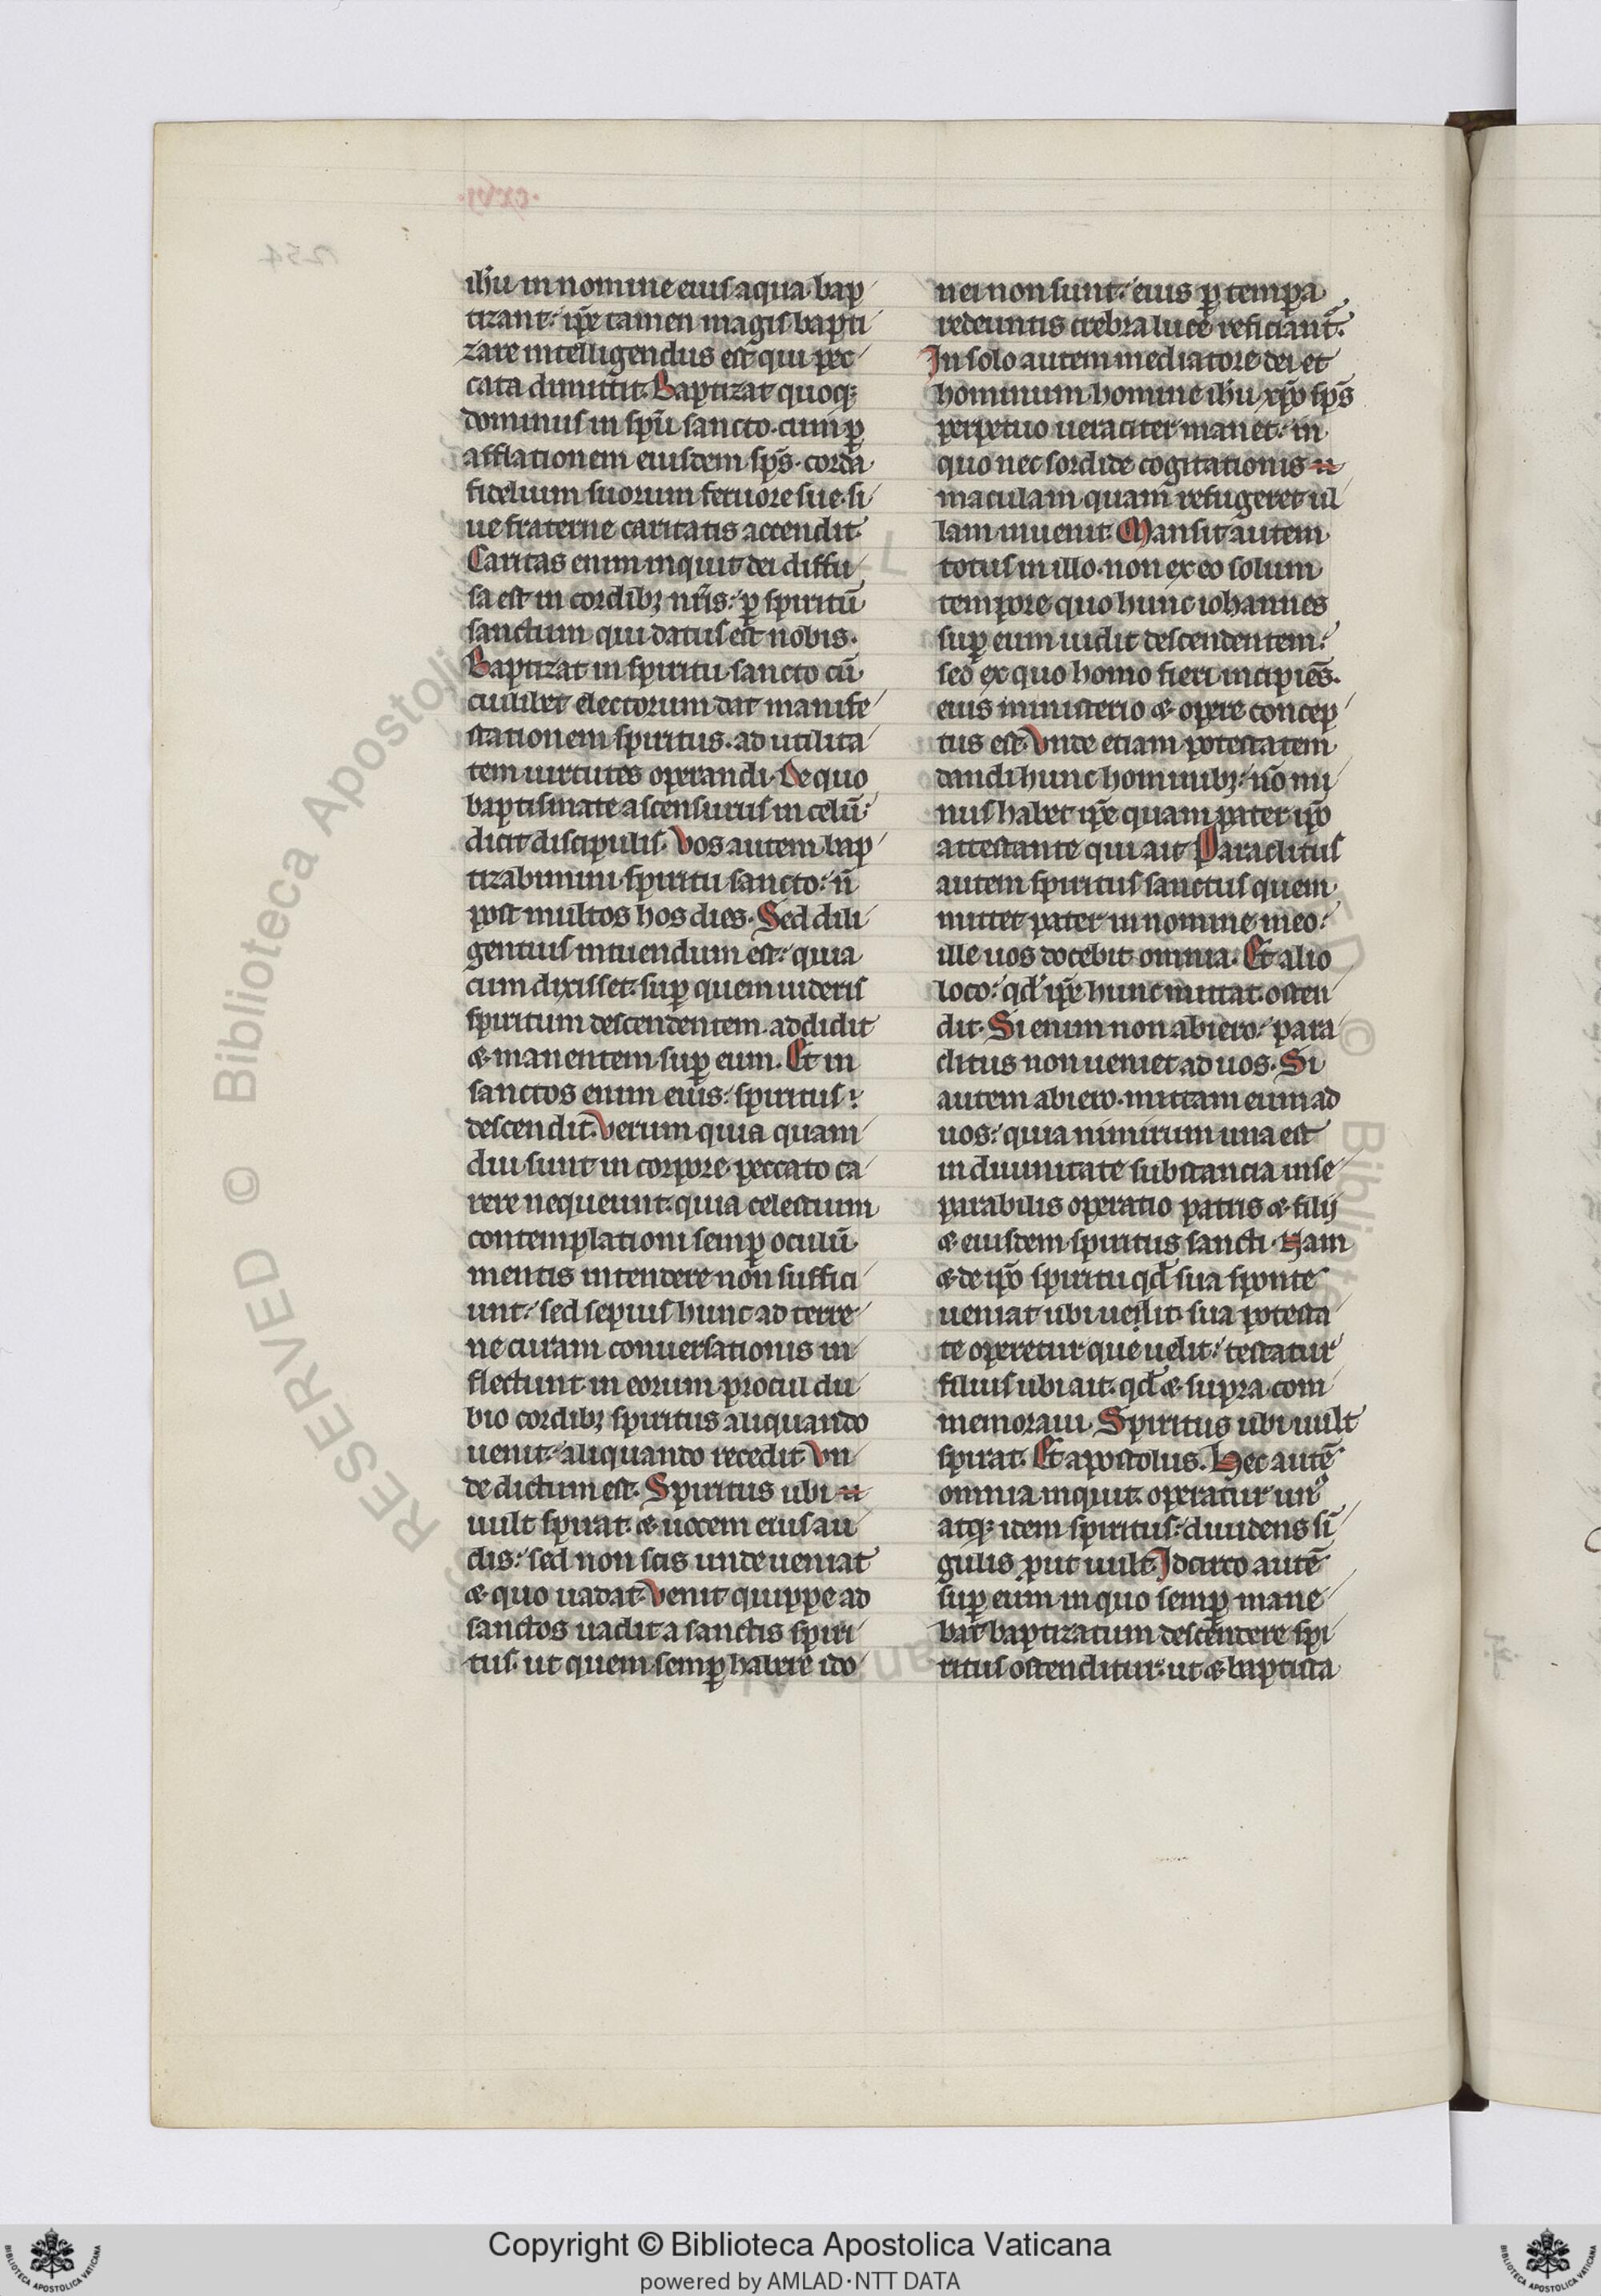 ih̄u in nomine eius aqua bap
tizant: ip̄e tamen magis bapti
zare intelligendus est qui pec
cata dimittit. Baptizat quoq;
dominus in sp̄u sancto. cum ꝑ
afflationem eiusdem sp̄s. corda
fidelium suorum feruore sue. si
ue fraterne caritatis accendit.
Caritas enim inquit dei diffu
sa est in cordibꝫ nr̄is: ꝑ spiritū
sanctum qui datus est nobis.
Baptizat in spiritu sancto cū
cuilibet electorum dat manife
stationem spiritus. ad utilita
tem uirtutes operandi. De quo
baptismate ascensurus in celū:
dicit discipulis. Vos autem bap
tizabimini spiritu sancto: n̄
post multos hos dies. Sed dili
gentius intuendum est: quia
cum dixisset. suꝑ quem uideris
spiritum descendentem. addidit
& manentem suꝑ eum. Et in
sanctos enim eius: spiritus:
descendit. Verum quia quam
diu sunt in corpore peccato ca
rere nequeunt. quia celestium
contemplationi semꝑ oculū
mentis intendere non suffici
unt: sed sepius hunc ad terre
ne curam conuersationis in
flectunt in eorum procul du
bio cordibꝫ spiritus aliquando
uenit: aliquando recedit. Vn
de dictum est. Spiritus ubi u
uult spirat. & uocem eius au
dis: sed non scis unde ueniat
& quo uadat. Venit quippe ad
sanctos uadit a sanctis spiri
tus. ut quem semꝑ habere ido
nei non sunt: eius ꝑ tempa
redeuntis crebra luce reficiant᷑.
In solo autem mediatore dei et
hominum homine ih̄u xp̄o sp̄s
perpetuo ueraciter manet: in
quo nec sordide cogitationis u
maculam quam refugeret ul
lam inuenit. Mansit autem
totus in illo. non ex eo solum
tempore quo hunc iohannes
suꝑ eum uidit descendentem:
sed ex quo homo fieri incipiēs.
eius ministerio & opere concep
tus est. Vnde etiam potestatem
dandi hunc hominibꝫ: nō mi
nus habet ip̄e quam pater ip̄o
attestante qui ait. Paraclitus
autem spiritus sanctus quem
mittet pater in nomine meo:
ille uos docebit omnia. Et alio
loco: qđ ip̄e hunc mittat. osten
dit. Si enim non abiero: para
clitus non ueniet ad uos. Si
autem abiero. mittam eum ad
uos: quia nimirum una est
in diuinitate substancia inse
parabilis operatio patris & filij
& eiusdem spiritus sancti. Nam
& de ip̄o spiritu qđ sua sponte
ueniat ubi uelit. sua potesta
te operetur que uelit: testatur
filius ubi ait. qđ & supra com
memoraui. Spiritus ubi uult
spirat. Et apostolus. Hec autē
omnia inquit operatur un᷒
atq; idem spiritus: diuidens sī
gulis ꝓut uult. Idcirco autē
suꝑ eum in quo semꝑ mane
bat baptizatum descendere spi
ritus ostenditur: ut & baptista
Copyright © Biblioteca Apostolica Vaticana
powered by AMLAD·NTT DATA